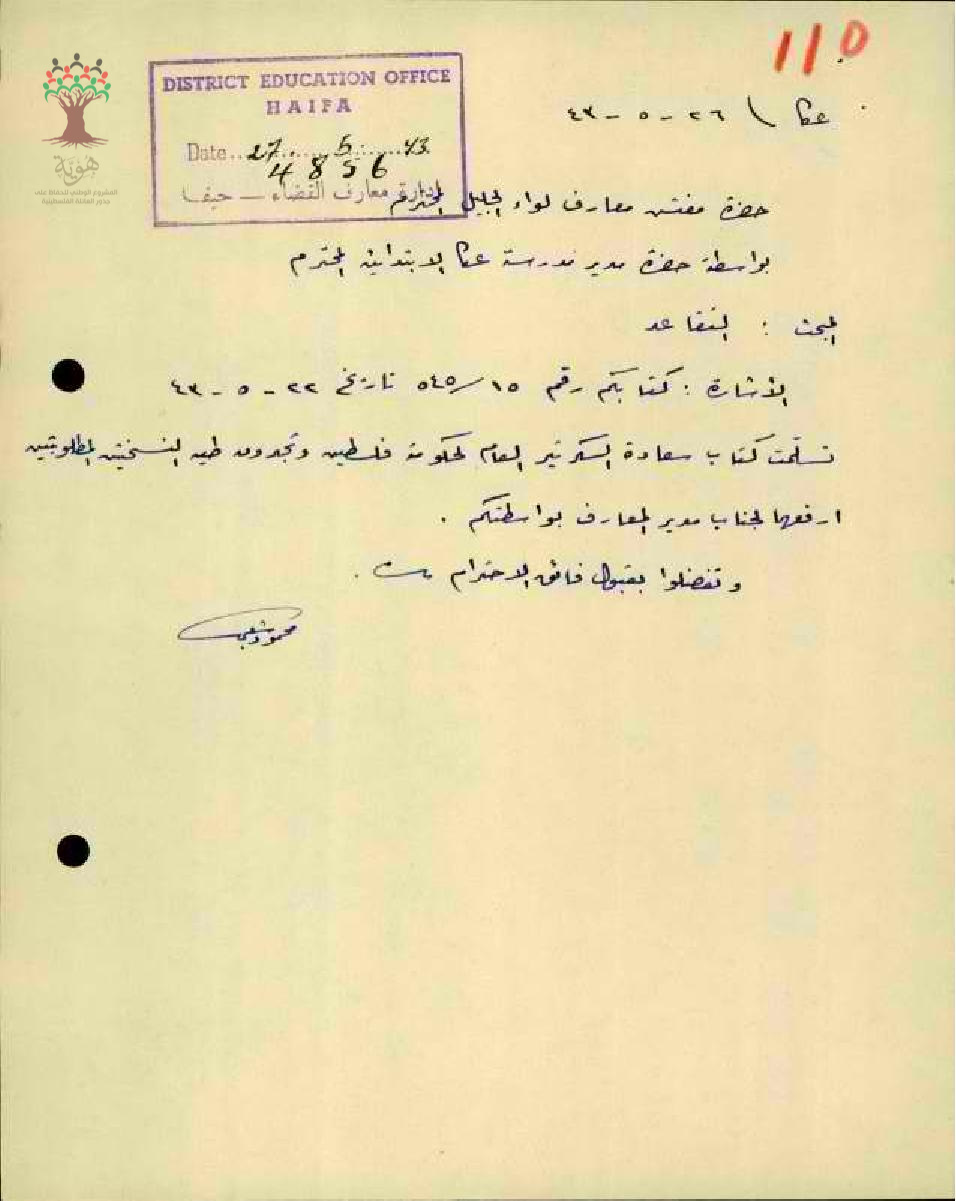 110
DISTRICT EDUCATION OFFICE
HAIFA
Date..27.....5.......43.
4856
إدارة معارف القضاء — حيفا
هوية
المشروع الوطني للحفاظ على
جذور العائلة الفلسطينية
عكا \ ٢٦ - ٥ - ٤٣
حضرة مفتش معارف لواء الجليل المحترم
بواسطة حضرة مدير مدرسة عكا الابتدائية المحترم
المبحث : التقاعد
الاشارة : كتابكم رقم ١٥/٥٤٥ تاريخ ٢٢ - ٥ - ٤٣
تسلمت كتاب سعادة السكرتير العام لحكومة فلسطين وتجدون طيه النسختين المطلوبتين
ارفعهما لجناب مدير المعارف بواسطتكم .
وتفضلوا بقبول فائق الاحترام
محمود